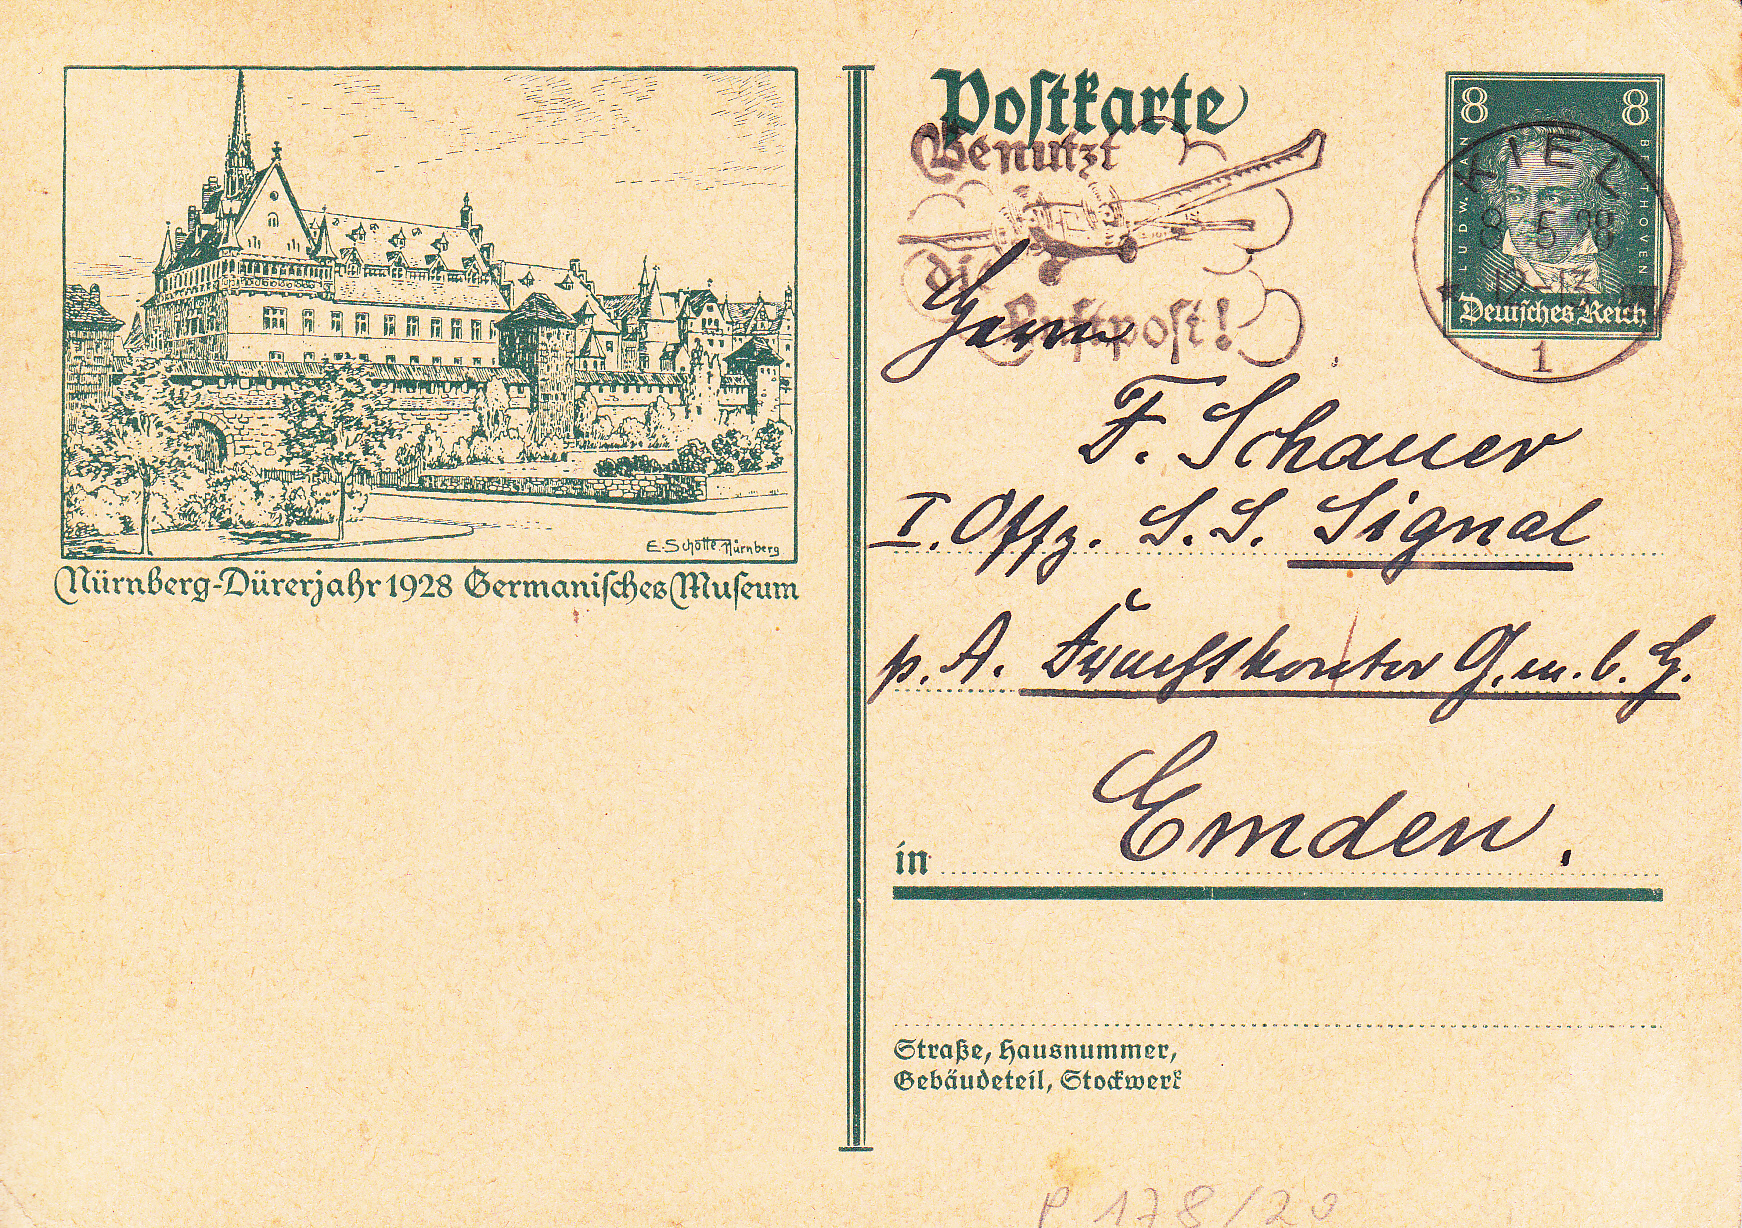 E. Schötte Nürnberg
Nürnberg-Dürerjahr 1928 Germanisches Museum
Postkarte
Benutzt
die
Luftpost!
8 8
LUDW. VAN BEETHOVEN
Deutsches Reich
KIEL
8.5.28
12-13
1
Herrn
F. Schauer
I. Offz. S.S. Signal
p. A. Frachtkontor G.m.b.H.
in Emden.
Straße, Hausnummer,
Gebäudeteil, Stockwerk
P 178/20